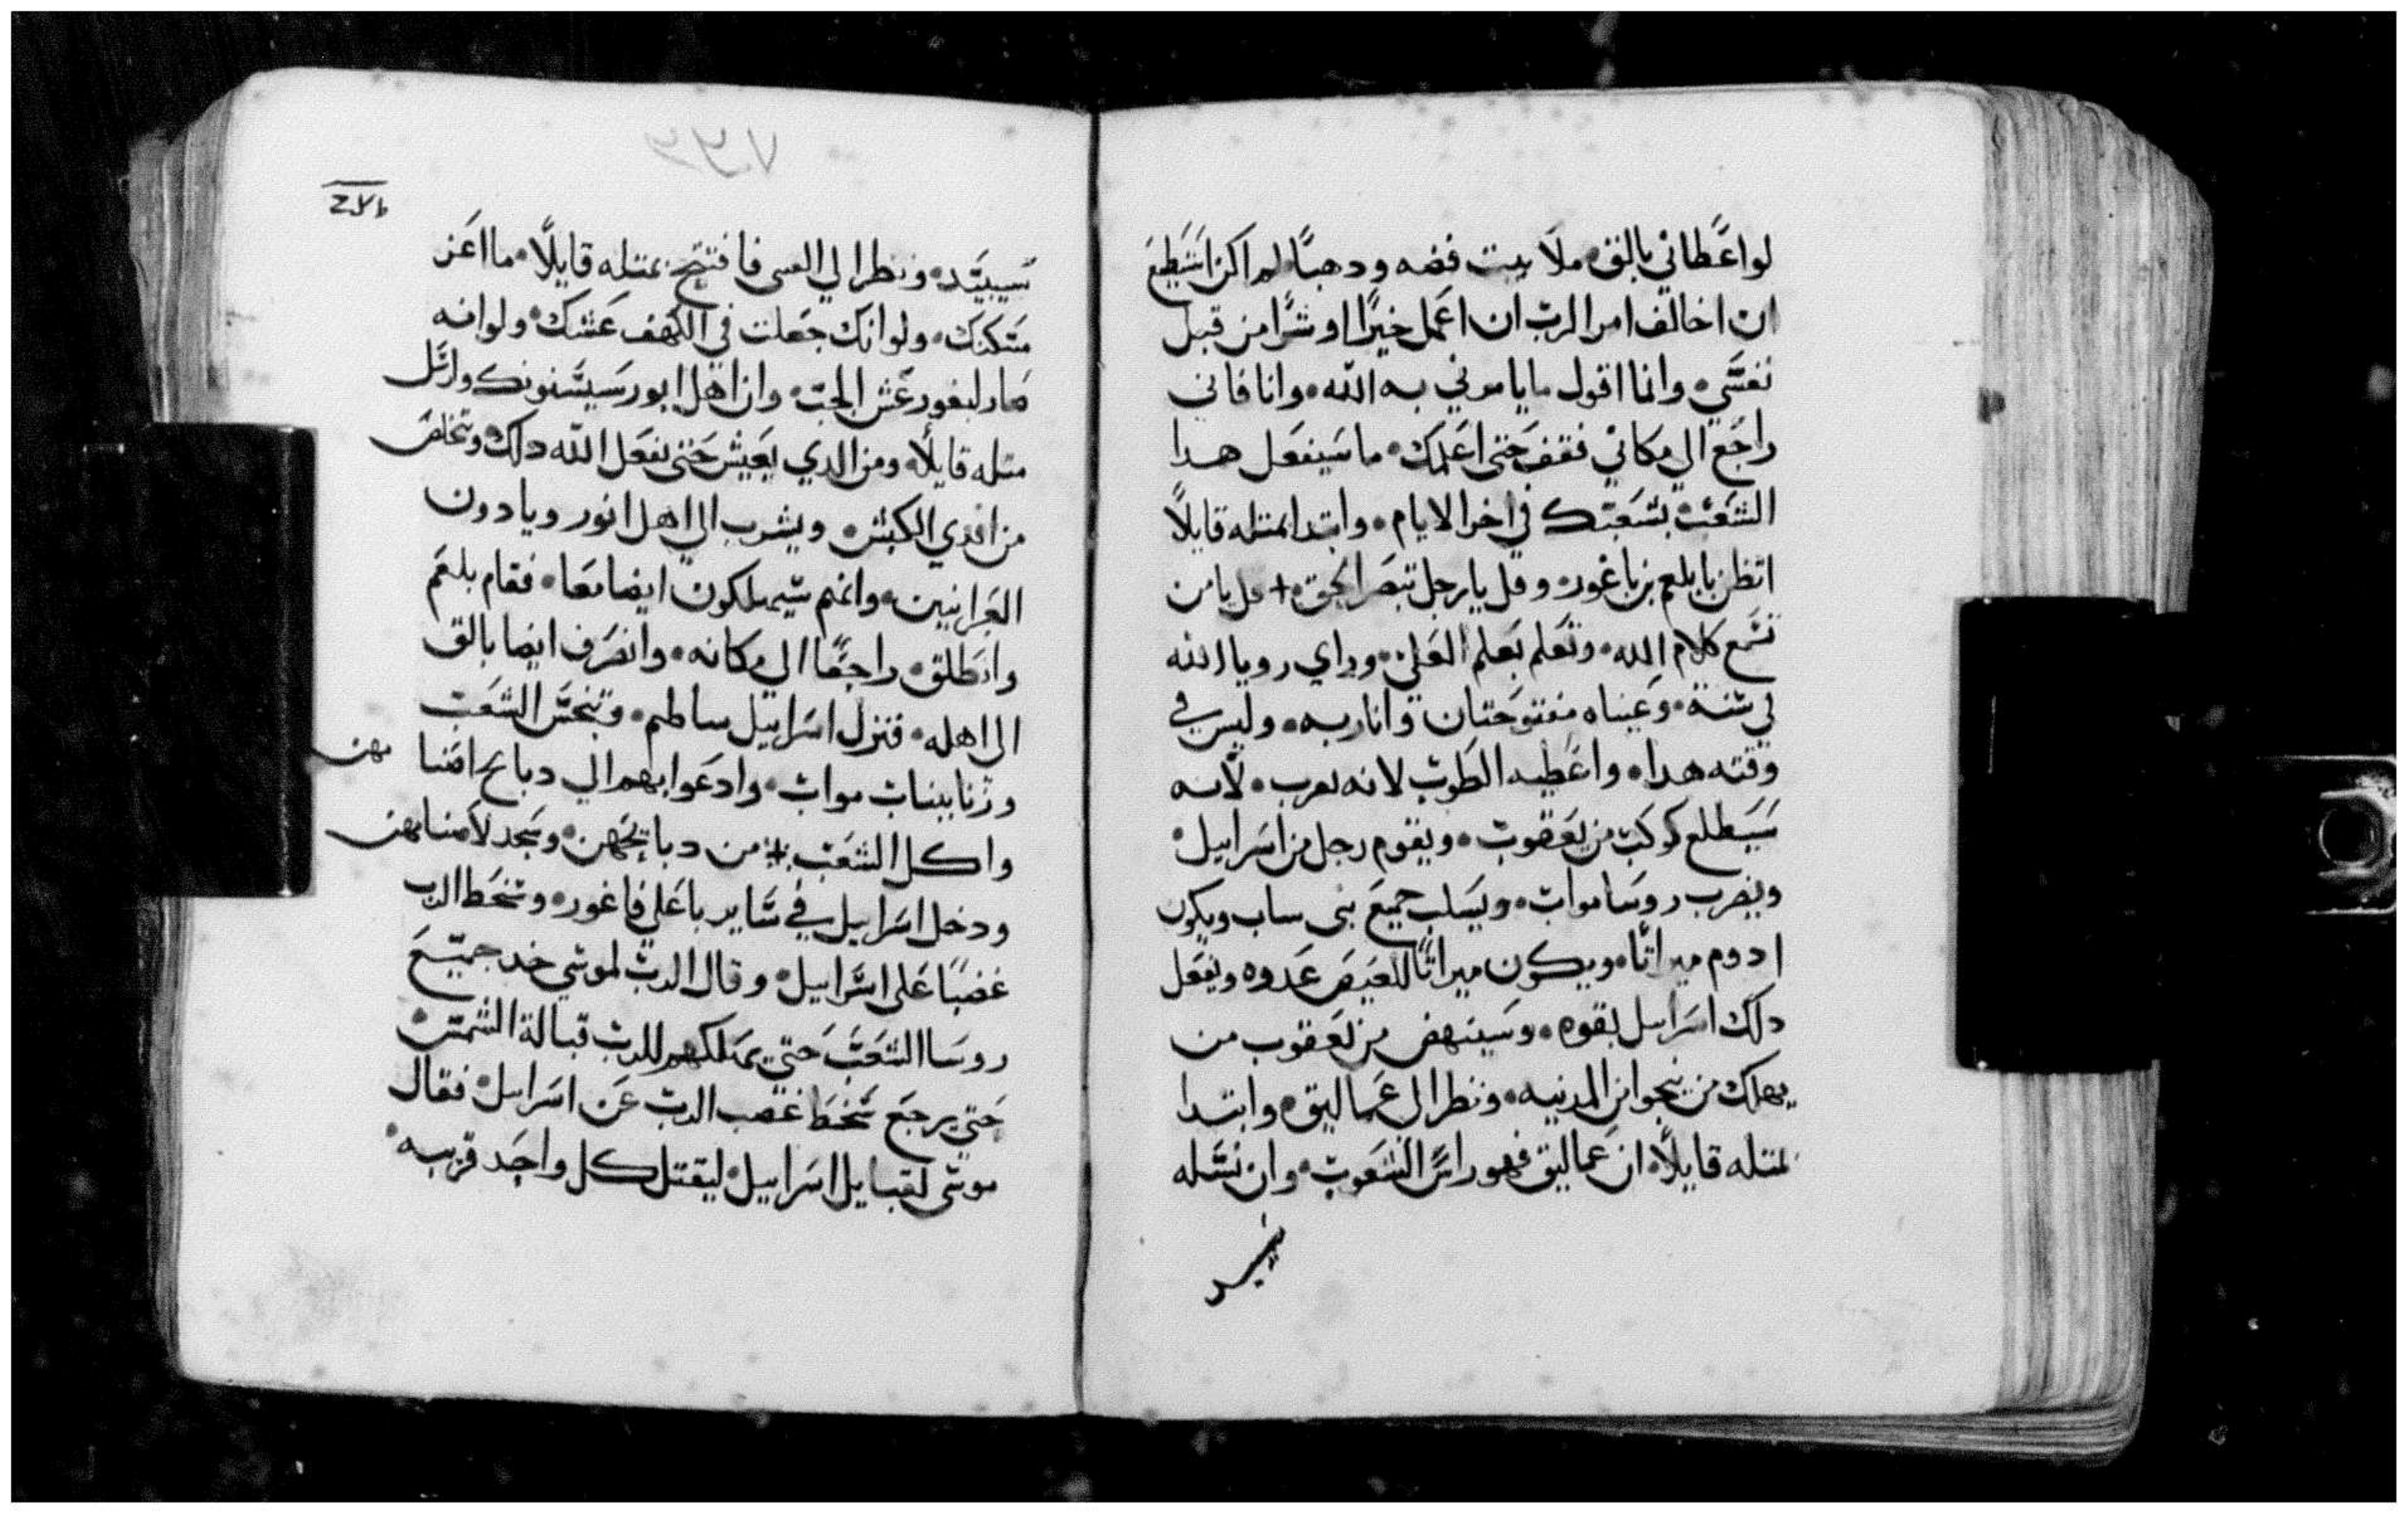 لو اعَطاني بالق ملا بيت فضه ودهبًا لم اكن استَطيع
ان اخالف امر الرب ان اعَمل خيرًا او شرًا من قبل
نفسَي وانما اقول ما يامرني به الله وانا فاني
راجَع الي مكاني فقف حَتي اعَلمك ما سَيفعَل هدا
الشعَب بشعَبك في اخر الايام وابتدا بمتله قايلاً
اتظن يا بلعم بن باغور وقل يا رجل تبصَر الحق + قل يا من
تسَمع كلام الله وتعَلم بعَلم العَلي وراي رويا الله
في سَنة وعَيناه مفتوحَتان وانا ربه وليس في
وقته هدا واعَطيه الطوب لانه يقرب لانه
سَيَطلع كوكب من يعَقوب ويقوم رجل من اسَراييل
ويضرب روسَا مواب ويسَلب جميعَ بني ساب ويكون
ادوم ميراتًا ويكون ميراتًا للعَيصَ عَدوه ويفعَل
دلك اسَراييل بقوه وسَينهض من يعَقوب من
يهلك من ينجوا من المدنيه ونظر الي عَماليق وابتدا
بمتله قايلاً ان عَماليق فهو راسَ الشعَوب وان نسَله
سَيبيَد
٢٧٦
سَيبيَد ونظر الي القسي فافتتح بمتله قايلاً ما اعَز
مسَكنك ولو انك جعَلت في الكهف عَشك ولو انه
صار لبغور عَش الجب وان اهل ابور سَيسَنونك وارتَل
متله قايلاً ومن الدي يعَيش حَتي يفعَل الله دلك وتخلص
من ايدي الكبش ويشرب الي اهل انور ويادون
العَبرانيين وانهم سَيهلكون ايضا معَا فقام بلعَم
وانطلق راجعًا الي مكانه وانصَرف ايضا بالق
الي اهله فنزل اسَراييل ساطيم وتنجسَ الشعَب
وزنا ببنات مواب وادعَوا بهم الي دبايح اصَنامهن
واكل الشعَب من دبايحَهن وسَجد لاصَنامهن
ودخل اسَراييل في سَاير باعَلي فاغور وسَخط الرب
غضبًا عَلي اسَراييل وقال الرب لموسَي خد جميعَ
روسَا الشعَب حَتي يمتلكهم للرب قبالة الشمسَ
حَتي يرجعَ سَخط غضب الرب عَن اسَراييل فقال
موسَي لقبايل اسَراييل ليقتل كل واحَد قريبه